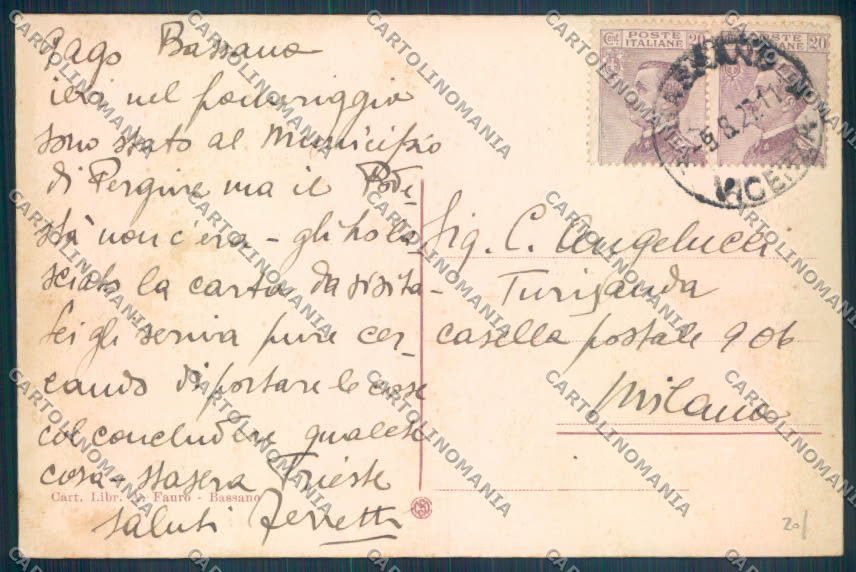 Bassano
ieri nel pomeriggio
sono stato al Municipio
di Pergine ma il Pode-
stà non c'era - gli ho la
sciato la carta da visita -
Lei gli scriva pure cer-
cando di portare le cose
col concludere qualche
cosa - stasera Trieste
saluti Ferretti
Cart. Libr. Fauro - Bassano
POSTE ITALIANE
Cent. 20
POSTE ITALIANE
20
VICENZA
Sig. C. Angelucci
Turisanda
casella postale 906
Milano
20/
CARTOLINOMANIA